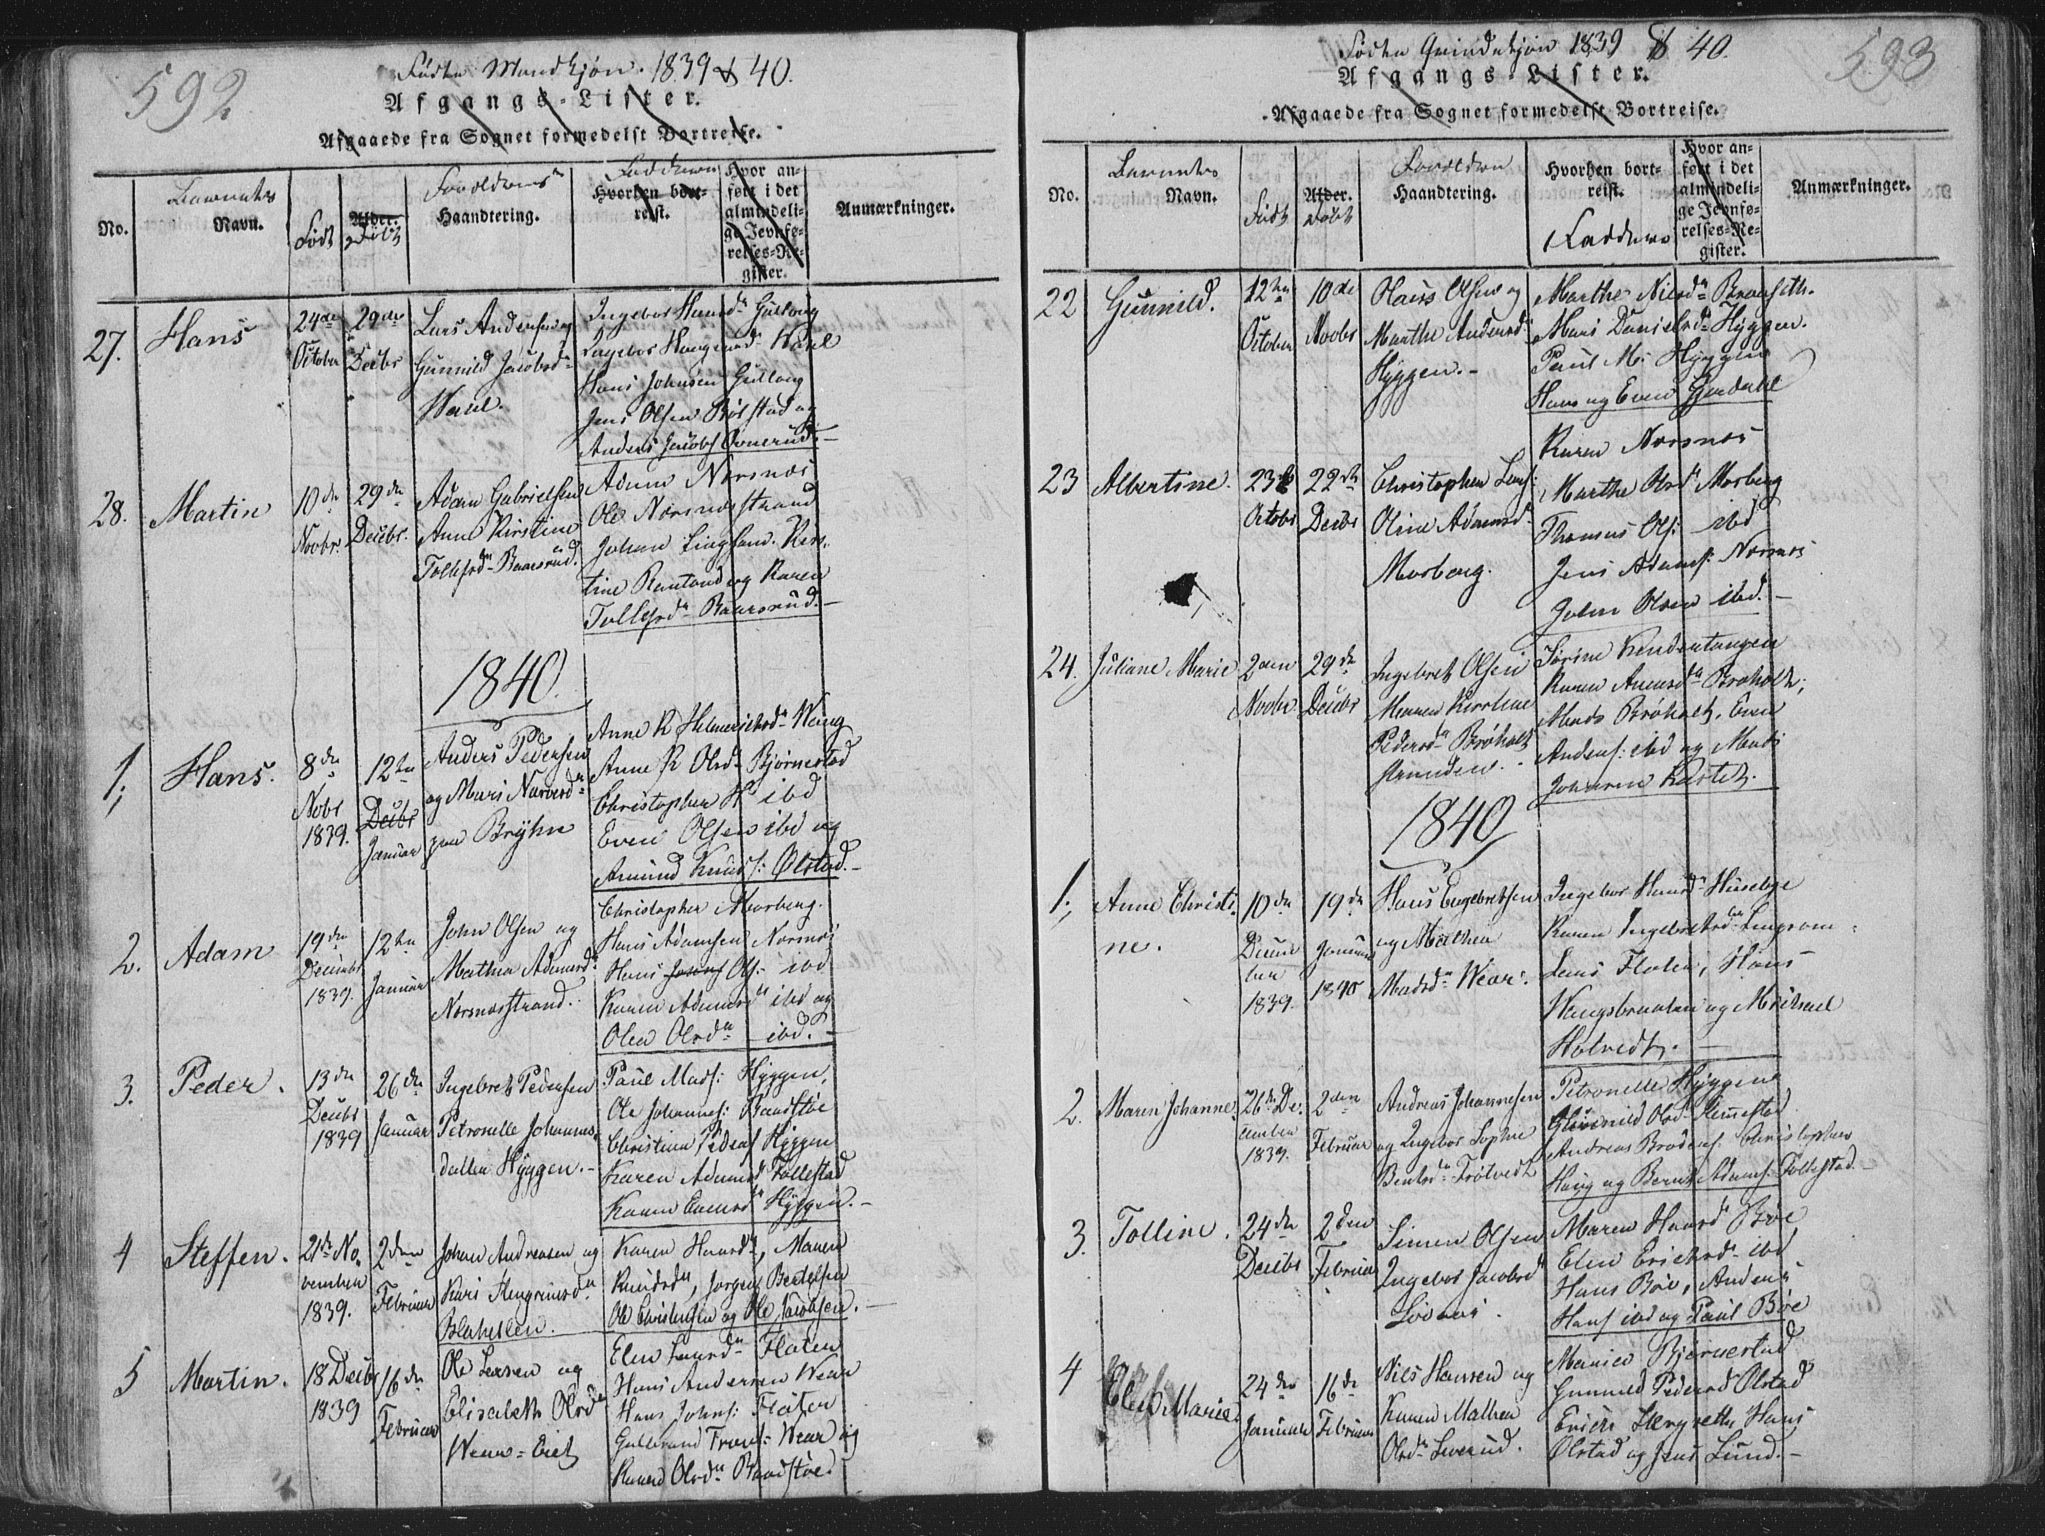 592
Fødte Mandkjøn. 1839 & 40.
Afgangs-Lister.
Afgaaede fra Sognet formedelst Bortreise.
No.
Barnets
Navn.
Født
Alder.
Døbt
Forældrenes
Haandtering.
Fadderne
Hvorhen bort-
reist.
Hvor an-
ført i det
almindeli-
ge Jevnfø-
relses-Re-
gister.
Anmærkninger.
27.
Hans
24de
October
29de
Decbr
Lars Andersen og
Gunnild Jacobsd.
Wæul.
Ingebor Hansd. Gullaug
Ingebor Haagensd.
Hans Johnsen Gullaug
Jens Olsen Bølstad og
Anders Jacobs Ovnerud.
28.
Martin
10de
Novbr.
29de
Decbr.
Adam Gabrielsen
Anne Kirstine
Tollefsd. Baarsrud.
Adam Narsnæs
Ole Narsnæsstrand
Johan Lingsom. Kirs-
tine og Karen
Tollefsd. Baarsrud.
1840.
1,
Hans.
8de
Nobr
1839.
12te
Decbr
Januar
Anders Pedersen
og Mari Narvesd.
paa Brÿhn
Anne K Helmerichsd. Wang
Anne K Olsd. Bjørnestad
Christopher H ibd
Even Olsen ibd og
Amund Knuds: Ølstad.
2.
Adam
19de
Decembr
1839.
12te
Januar
John Olsen og
Mathea Adamsd.
Narsnæsstrand.
Christopher Morberg.
Hans Adamsen Narsnæs
Hans Ols: ibd
Karen Adamsd. ibd og
Olea Olsd. ibd.
3.
Peder.
13de
Decbr
1839
26de
Januar
Ingebret Pedersen
Petronelle Johannes-
datter Hÿggen.
Paul Mads: Hÿggen,
Ole Johannes: Baadstøe
Christian Peders Hÿggen
Karen Adamsd. Tollestad
Karen Hÿggen.
4
Steffen.
21de No-
vember
1839.
2den
Februar
Johan Andreasen og
Kari Stengrimsd.
Blaksten.
Karen Hansd., Maren
Knudsd., Jørgen Bertelsen
Ole Christensen og Ole Jacobsen.
5
Martin.
18 Decbr
1839
16de
Februar
Ole Larsen og
Elisabeth Olsd.
Wear-Eiet
Elen Larsd. Flaten
Hans Andersen Wear
Hans Johns: Flaten
Gulbrand Frants: Wear og
Karen Olsd. Baadstøe.
593
Fødte Qvindekjøn 1839 & 40.
Afgangs-Lister.
Afgaaede fra Sognet formedelst Bortreise.
No.
Barnets
Navn.
Født
Alder.
Døbt
Forældren
Haandtering.
Hvorhen bort-
reist.
Faddere
Hvor an-
ført i det
almindeli-
ge Jevnfø-
relses-Re-
gister.
Anmærkninger.
22
Gunnild.
12te
October
10de
Novbr
Hans Olsen og
Marthe Andersd.
Hÿggen.
Marthe Nilsd.
Mari Danielsd. Hÿggen.
Paul M. Hÿggen
Hans og Even Gjerdahl
23
Albertine.
23de
Octobr
22de
Decbr
Christopher Lars:
Oline Adamsd.
Morberg.
Karen Narsnæs
Marthe Olsd. Morberg
Thomas Ols: ibd
Jens Adams: Narsnæs
John Olsen ibd.
24.
Juliane Marie
2den
Novbr
29de
Decbr
Ingebret Olsen
Maren Kirstine
Pedersd. Brøholt
stranden.
Karen Brøholt,
Mads Brøholt, Even
Anders: ibd og Mads
Johansen
1840
1.,
Anne Christi-
ne.
10de
Decem-
ber
1839.
19de
Januar
1840
Hans Engebretsen
og Mathea
Madsd. Wear.
Ingebor Hansd. Husebye
Karen Ingebretsd. Lingsom
Lars Flaten, Hans
Haugsbraaten og Michael
Holvedt.
2.
Maren Johanne.
26de De-
cember
1839.
2den
Februar
Andreas Johannesen
og Ingebor Sophie
Bentsd. Frøtvedt
Petronelle Hÿggen
Gunnild Olsd.
Andreas Christopher
Haug og Bernt Adams: Tollestad.
3.
Tolline.
24de
Decbr
2den
Februar
Simen Olsen
Ingebor Jacobsd.
Maren Hansd. Bøe
Elen Erichsd. ibd
Hans Bøe, Anders
Hans ibd og Paul Bøe
4
Elen Marie
24de
Januar
16de
Februar
Nils Hansen og
Karen Mathea
Olsd. Leverud.
Maria Bjørnestad
Gunnild Pedersd. Ølstad
Hans
Ølstad og Jens Lund.